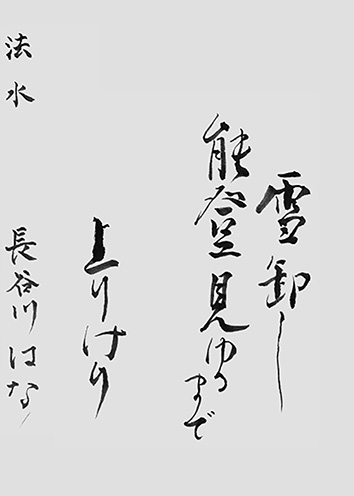 雪卸し
能登見ゆるまで
上りけり
法水　長谷川はな